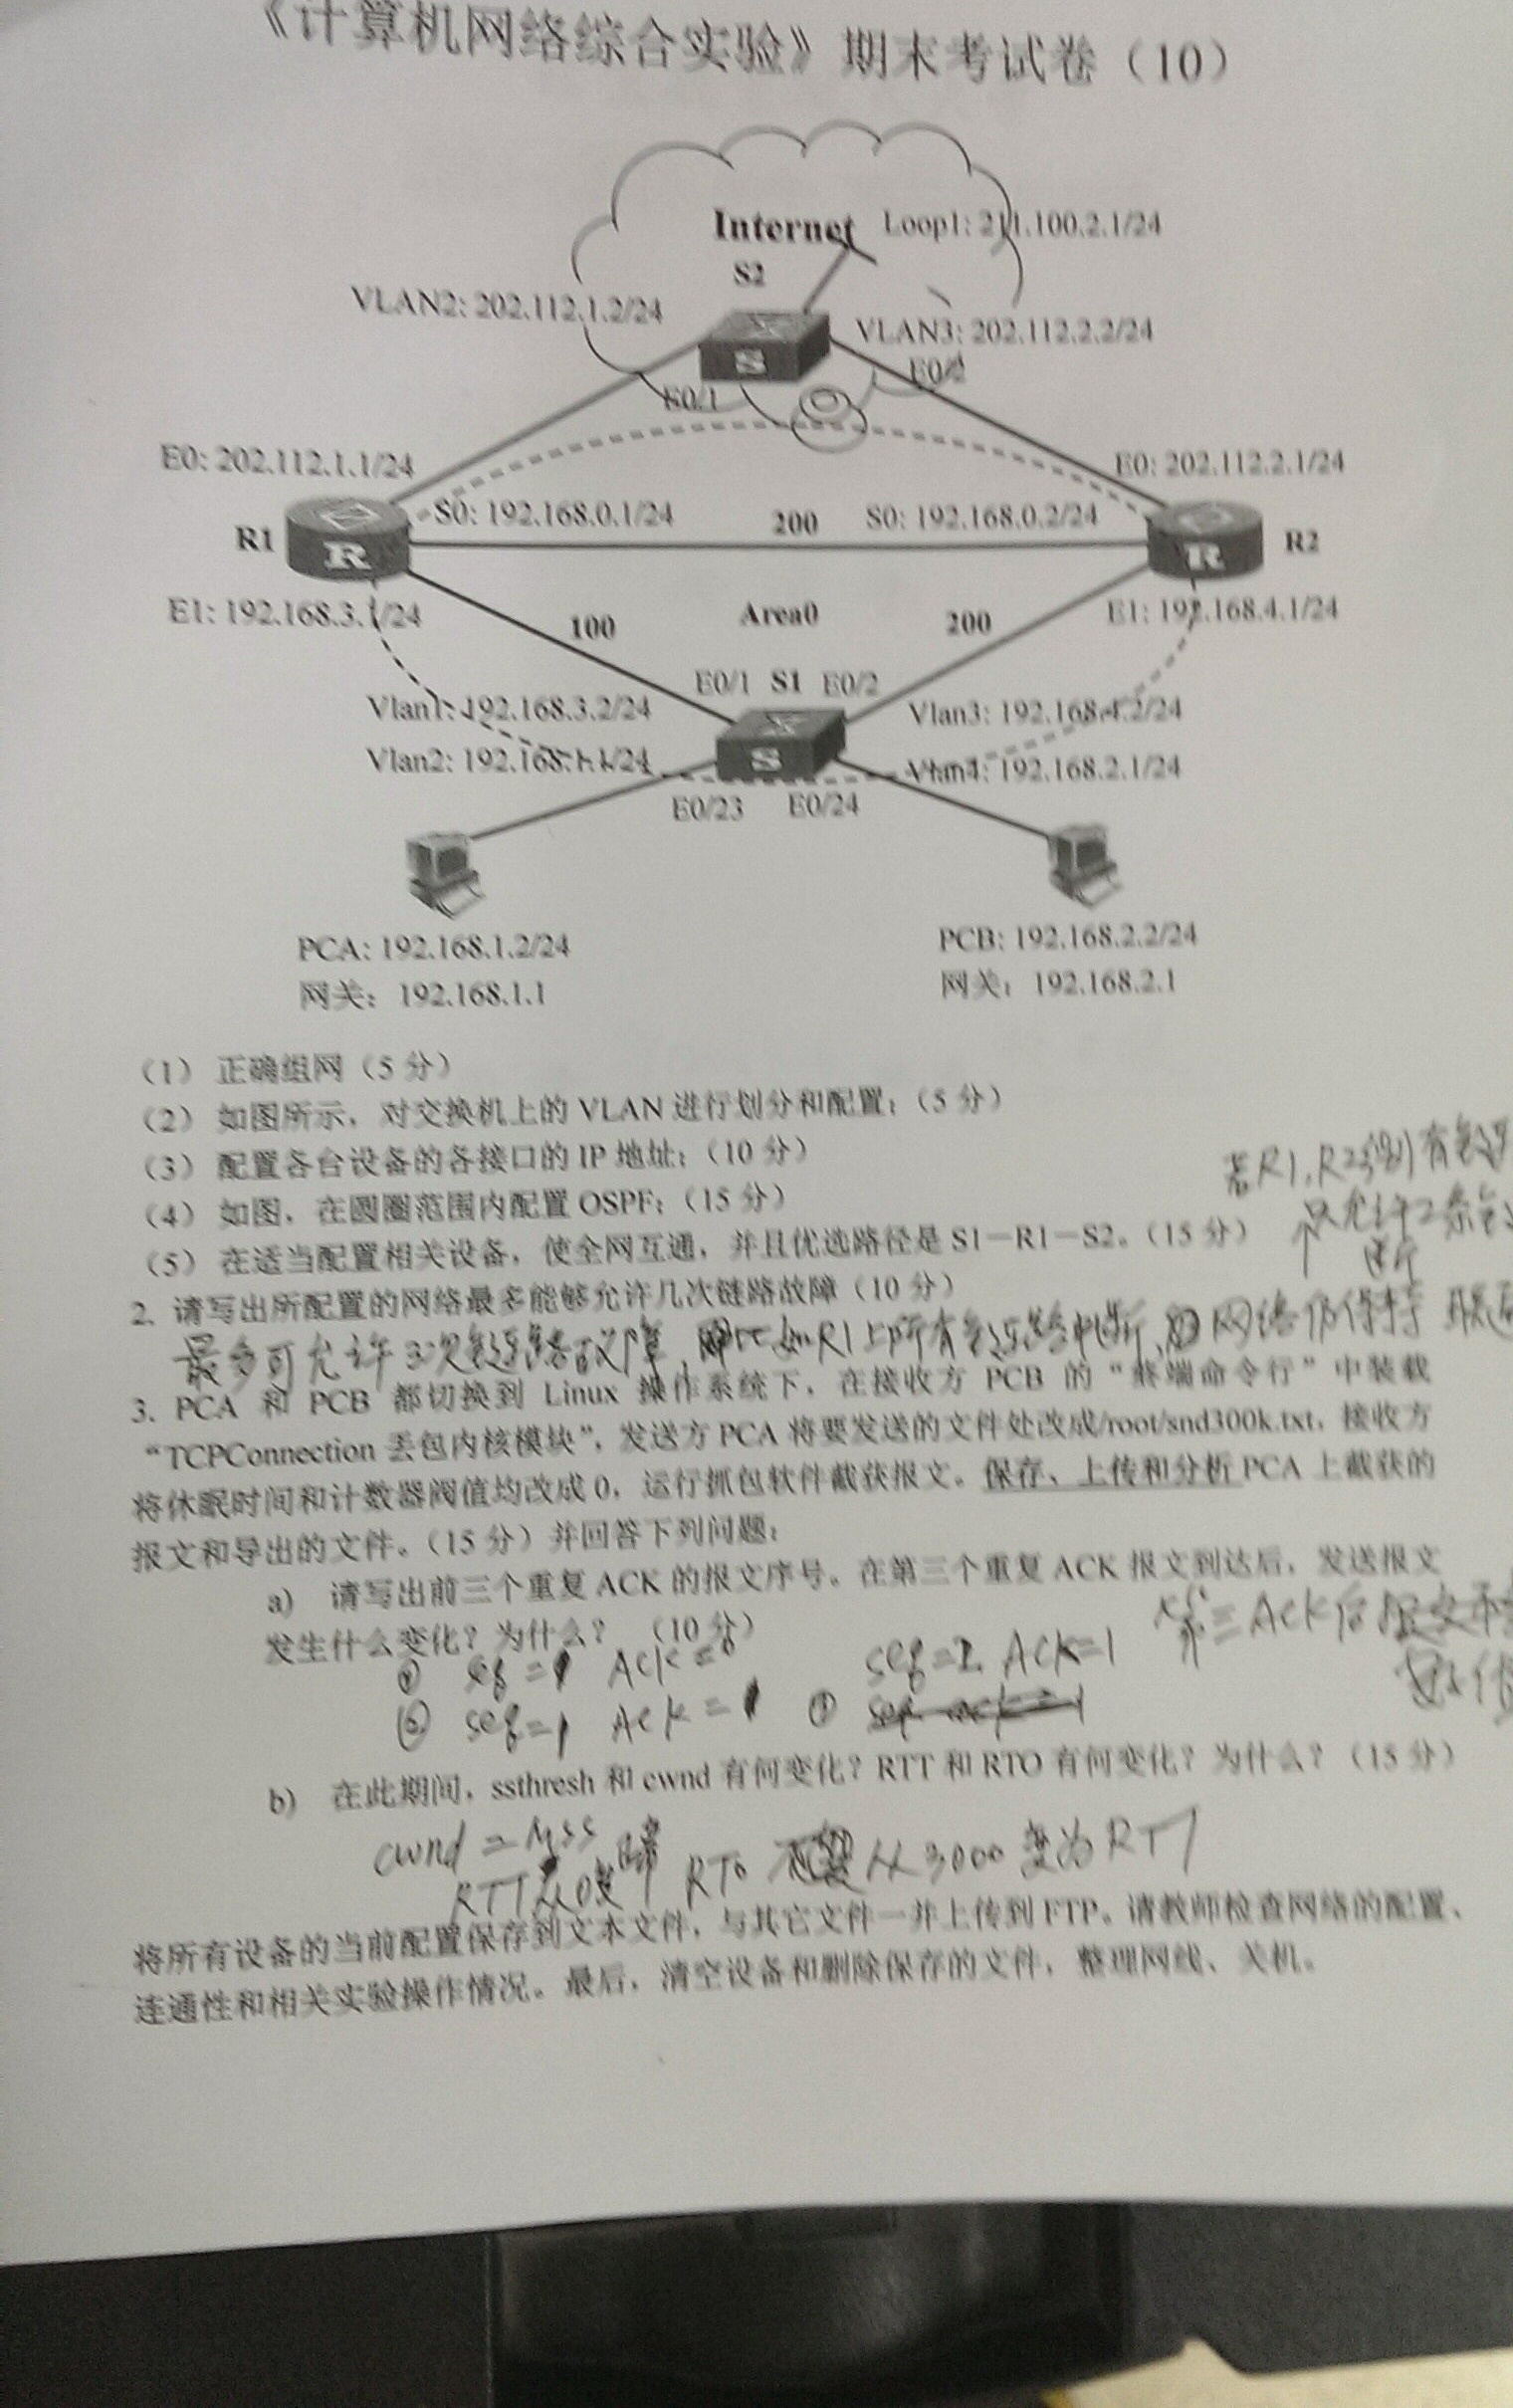 《计算机网络综合实验》期末考试卷（10）
Internet
Loop1: 211.100.2.1/24
S2
VLAN2: 202.112.1.2/24
VLAN3: 202.112.2.2/24
S
E0/1
E0/2
E0: 202.112.1.1/24
E0: 202.112.2.1/24
S0: 192.168.0.1/24
200
S0: 192.168.0.2/24
R1
R
R
R2
E1: 192.168.3.1/24
100
Area0
200
E1: 192.168.4.1/24
E0/1 S1 E0/2
Vlan1: 192.168.3.2/24
Vlan3: 192.168.4.2/24
Vlan2: 192.168.1.1/24
S
Vlan4: 192.168.2.1/24
E0/23
E0/24
PCA: 192.168.1.2/24
PCB: 192.168.2.2/24
网关：192.168.1.1
网关：192.168.2.1
（1） 正确组网（5 分）
（2） 如图所示，对交换机上的 VLAN 进行划分和配置；（5 分）
（3） 配置各台设备的各接口的 IP 地址；（10 分）
（4） 如图，在圆圈范围内配置 OSPF；（15 分）
（5） 在适当配置相关设备，使全网互通，并且优选路径是 S1－R1－S2。（15 分）
若R1,R2
只允许2条
断
2. 请写出所配置的网络最多能够允许几次链路故障（10 分）
最多可允许3次链路故障，比如R1上所有链路中断，网络仍保持联通
3. PCA 和 PCB 都切换到 Linux 操作系统下，在接收方 PCB 的“终端命令行”中装载
“TCPConnection 丢包内核模块”，发送方 PCA 将要发送的文件处改成/root/snd300k.txt，接收方
将休眠时间和计数器阀值均改成 0，运行抓包软件截获报文。保存、上传和分析 PCA 上截获的
报文和导出的文件。（15 分）并回答下列问题：
a) 请写出前三个重复 ACK 的报文序号。在第三个重复 ACK 报文到达后，发送报文
发生什么变化？为什么？ （10 分）
第三ACK后报文
① seq=1 ACK=
seq=2 ACK=1
② seq=1 ACK=1
b) 在此期间，ssthresh 和 cwnd 有何变化？RTT 和 RTO 有何变化？为什么？（15 分）
cwnd = MSS
RTT从0 RTO 从3000变为RTT
将所有设备的当前配置保存到文本文件，与其它文件一并上传到 FTP。请教师检查网络的配置、
连通性和相关实验操作情况。最后，清空设备和删除保存的文件，整理网线、关机。